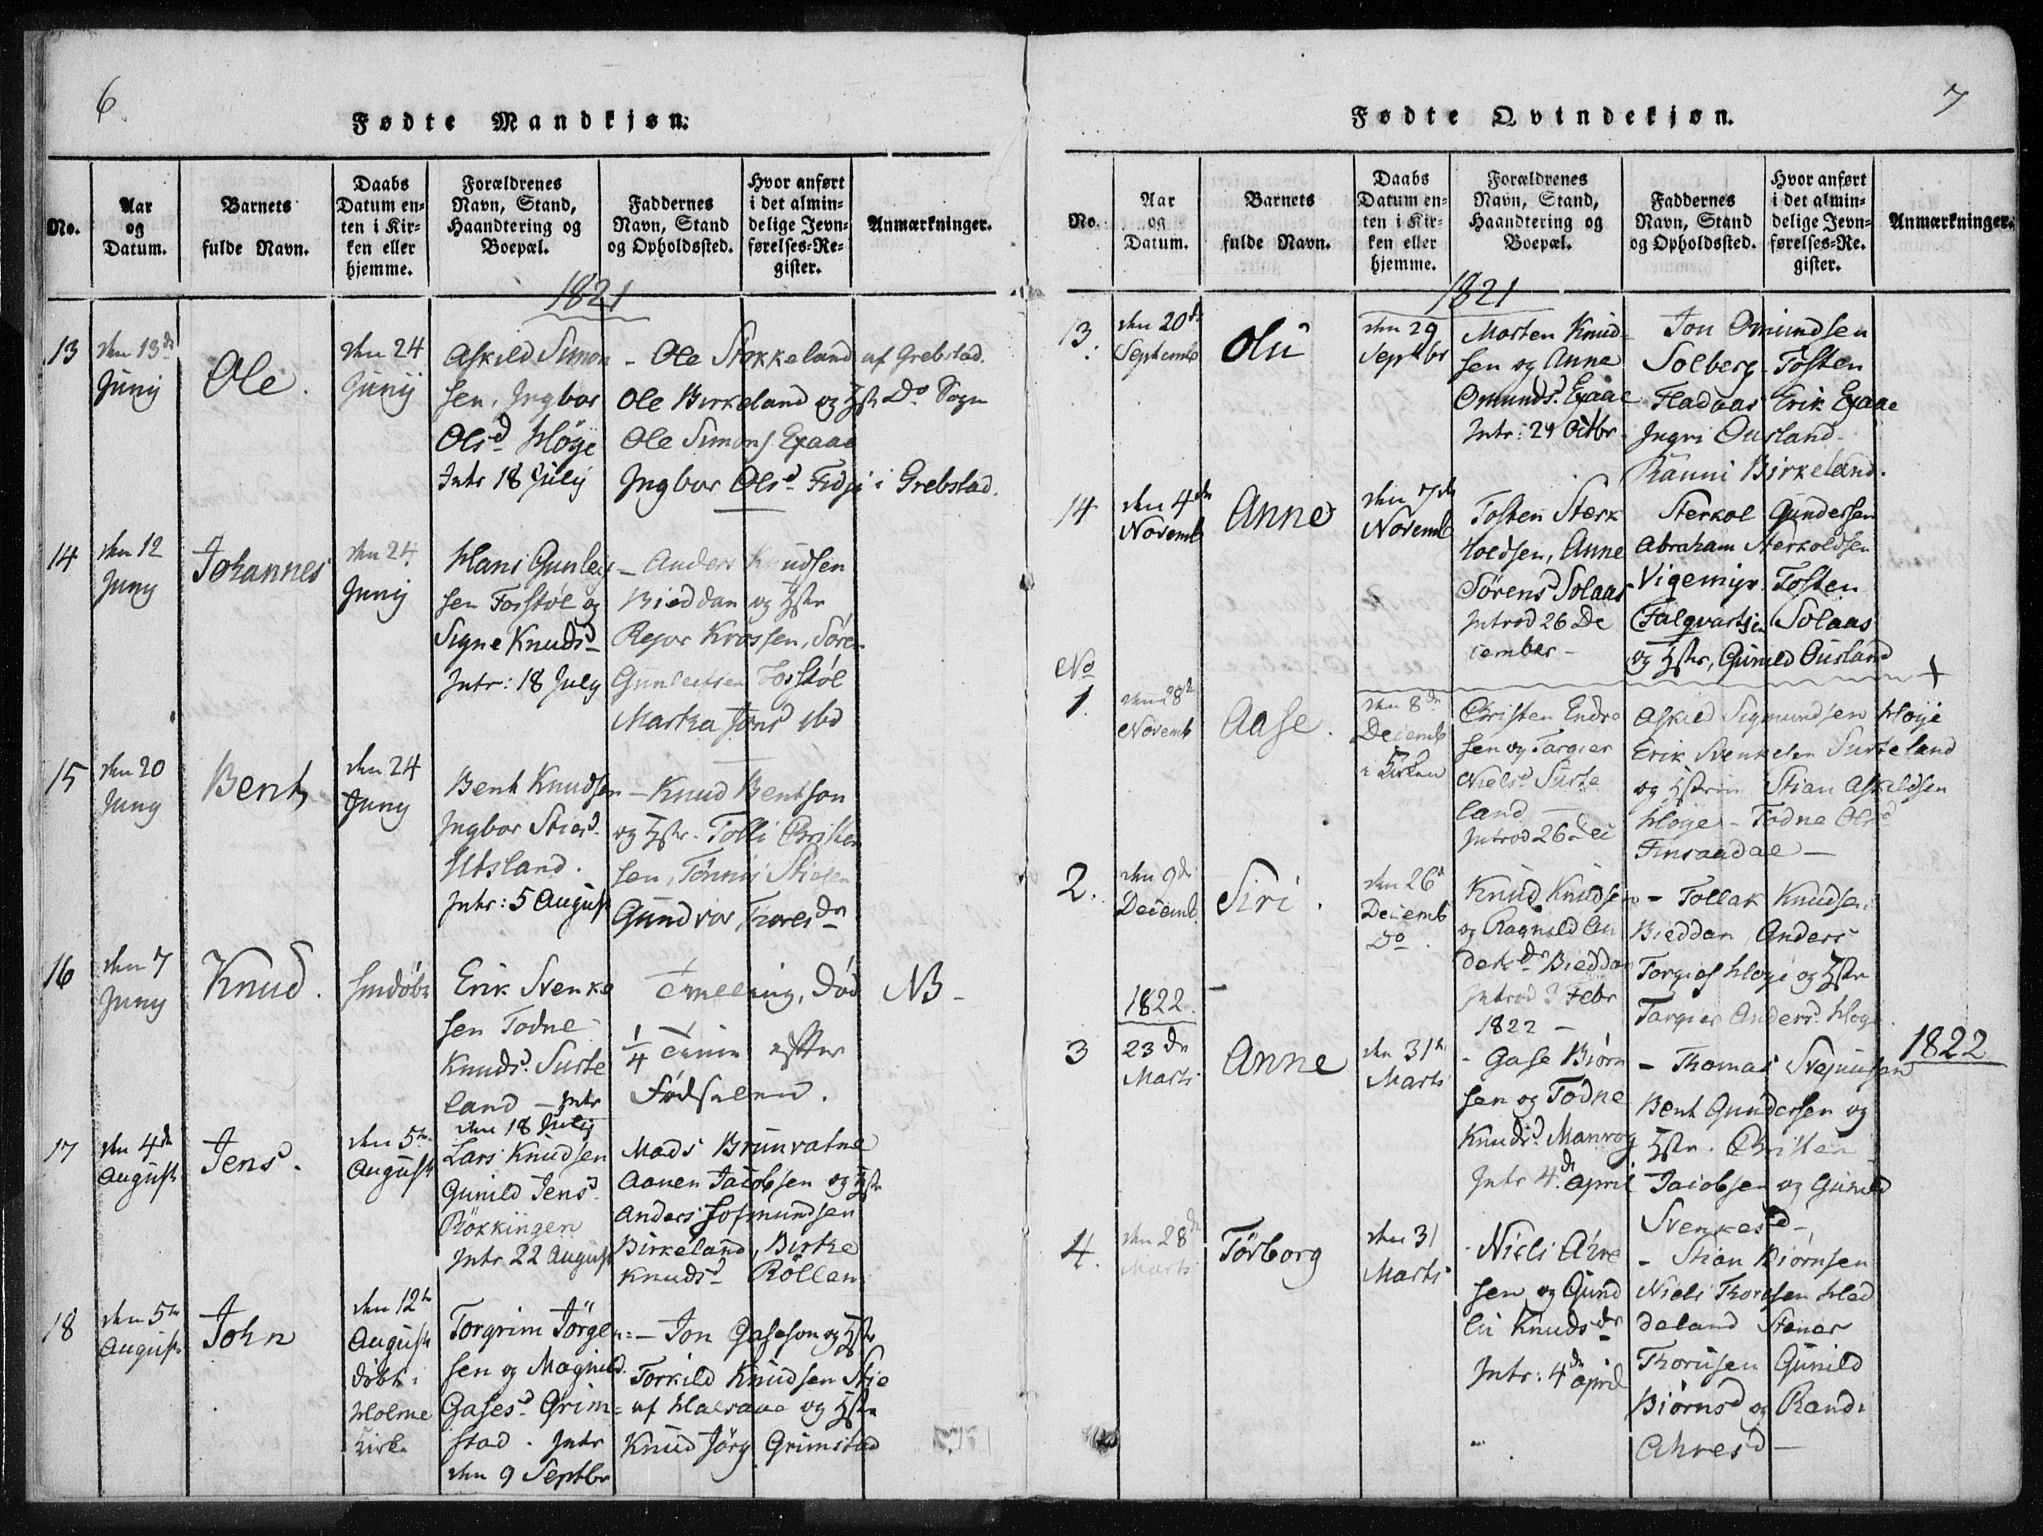 6.
Fødte Mandkjøn.
No.
Aar
og
Datum.
Barnets
fulde Navn.
Daabs
Datum en-
ten i Kir-
ken eller
hjemme.
Forældrenes
Navn, Stand,
Haandtering og
Boepæl.
Faddernes
Navn, Stand
og Opholdssted.
Hvor anført
i det almin-
delige Jevn-
førelses-Re-
gister.
Anmærkninger.
1821
13
den 13de
Junij
Ole.
den 24
Junij
Askild Simon
sen, Ingbor
Olsd. Høye
Intr 18 July
- Ole Stokkeland af Grebstad.
Ole Birkeland og Hstr Do Sogn
Ole Simons Exaae
Ingbor Olsd. Fidje i Grebstad.
14
den 12
Juny
Johannes
den 24
Junij
Hans Gunley
sen Fosstøl og
Signe Knudsd
Intr: 18 July
- Anders Knudsen
Bieddan og Hstr
Rejor Krossen, Søren
Gunleitsen Fosstøl
Martha Jonsd ibd
15
den 20
Juny
Bent
den 24
Juny
Bent Knudsen
Ingbor Stiesd.
Utsland.
Intr: 5 August
- Knud Bentson
og Hstr. Tolli Christen
sen, Tønnes Stiesen
Gundvor Thoresdr
16
den 7
Juny
Knud.
hmdøbt
Erik Svenke
sen Todne
Knudsd. Surte
land - Intr
den 18 July
Tvilling, død
1/4 Time efter
Fødselen.
NB -
17
den 4de
August
Jens.
den 5te
August
Lars Knudsen
Gunild Jensd.
Røkkingen
Intr 22 August
Mads Brunvatne
Aanen Jacobsen og Hstr
Anders Josmundsen
Birkeland, Birthe
Knudsd Rollen
18
den 5te
August
John
den 12te
August
døbt i
Holme
Kirke
Torgrim Jørgen=
sen og Magnild
Gasesd. Grim=
stad. Intr
den 9 Septbr
- Jon Gaseson og Hstr
Torkild Knudsen Stie
af Halraae og Hstr
Knud Jørg Grimstad
7
Fødte Qvindekjøn.
No.
Aar
og
Datum.
Barnets
fulde Navn.
Daabs
Datum en-
ten i Kir-
ken eller
hjemme.
Forældrenes
Navn, Stand,
Haandtering og
Boepæl.
Faddernes
Navn, Stand
og Opholdssted.
Hvor anført
i det almin-
delige Jevn-
førelses-Re-
gister.
Anmærkninger.
1821
13.
den 20de
Septemb
Olu
den 29
Septbr
Morten Knud
sen og Anne
Omundsd. Exaae
Intr: 24 Octbr
Jon Omundsen
Solberg. Tosten
Fladaas Erik Exaae
Ingri Ousland
Ranni Birkeland.
14
den 4de
Novemb
Anne
den 7de
Novemb
Tosten Stærk
holdsen, Anne
Sørensd Solaas
Introd 26 De
cember -
Sterkol Gundersen
Abraham Sterkoldsen
Vigemyr Tosten
Falqvartsen Solaas
og Hstr, Gunild Ousland
No
1.
den 28de
Novemb
Aase.
den 8de
Decemb
i Kirken
Christen Endre
sen og Targier
Nielsd. Surte
land
Introd 26 Dec
Askild Sigmundsen Høye
Erik Svenkesen Surteland
og Hstrin Stian Askildsen
Høye - Todne Olsd
Finsaadal -
2.
den 9de
Decemb.
Siri.
den 26d
Decemb
Do.
Knud Knudsen
og Ragnild An
dersdr Bieddan
Introd 3 Febr
1822 -
- Tollak Knudsen
Bieddan, Anders
Torgiels Høye og Hstr
Targier Andersd. Høye.
1822.
3
23de
Marts
Anne
den 31te
Marts
- Gase Biørn
sen og Todne
Knudsd. Manrog
Intr 4de April
- Thomas Svejnusen
Bent Gundersen og
Hstr. Christen
Jacobsen og Gunild
Svenkesd -
1822
4.
den 28de
Marts
Torborg
den 31
Marts
- Niels Ahre
sen og Gund
lu Knudsdr
Intr: 4de April
- Stian Biørnsen
Niels Thorusen Had
deland Stener
Thorusen Gunild
Biørnsd og Randi
Ahresd -